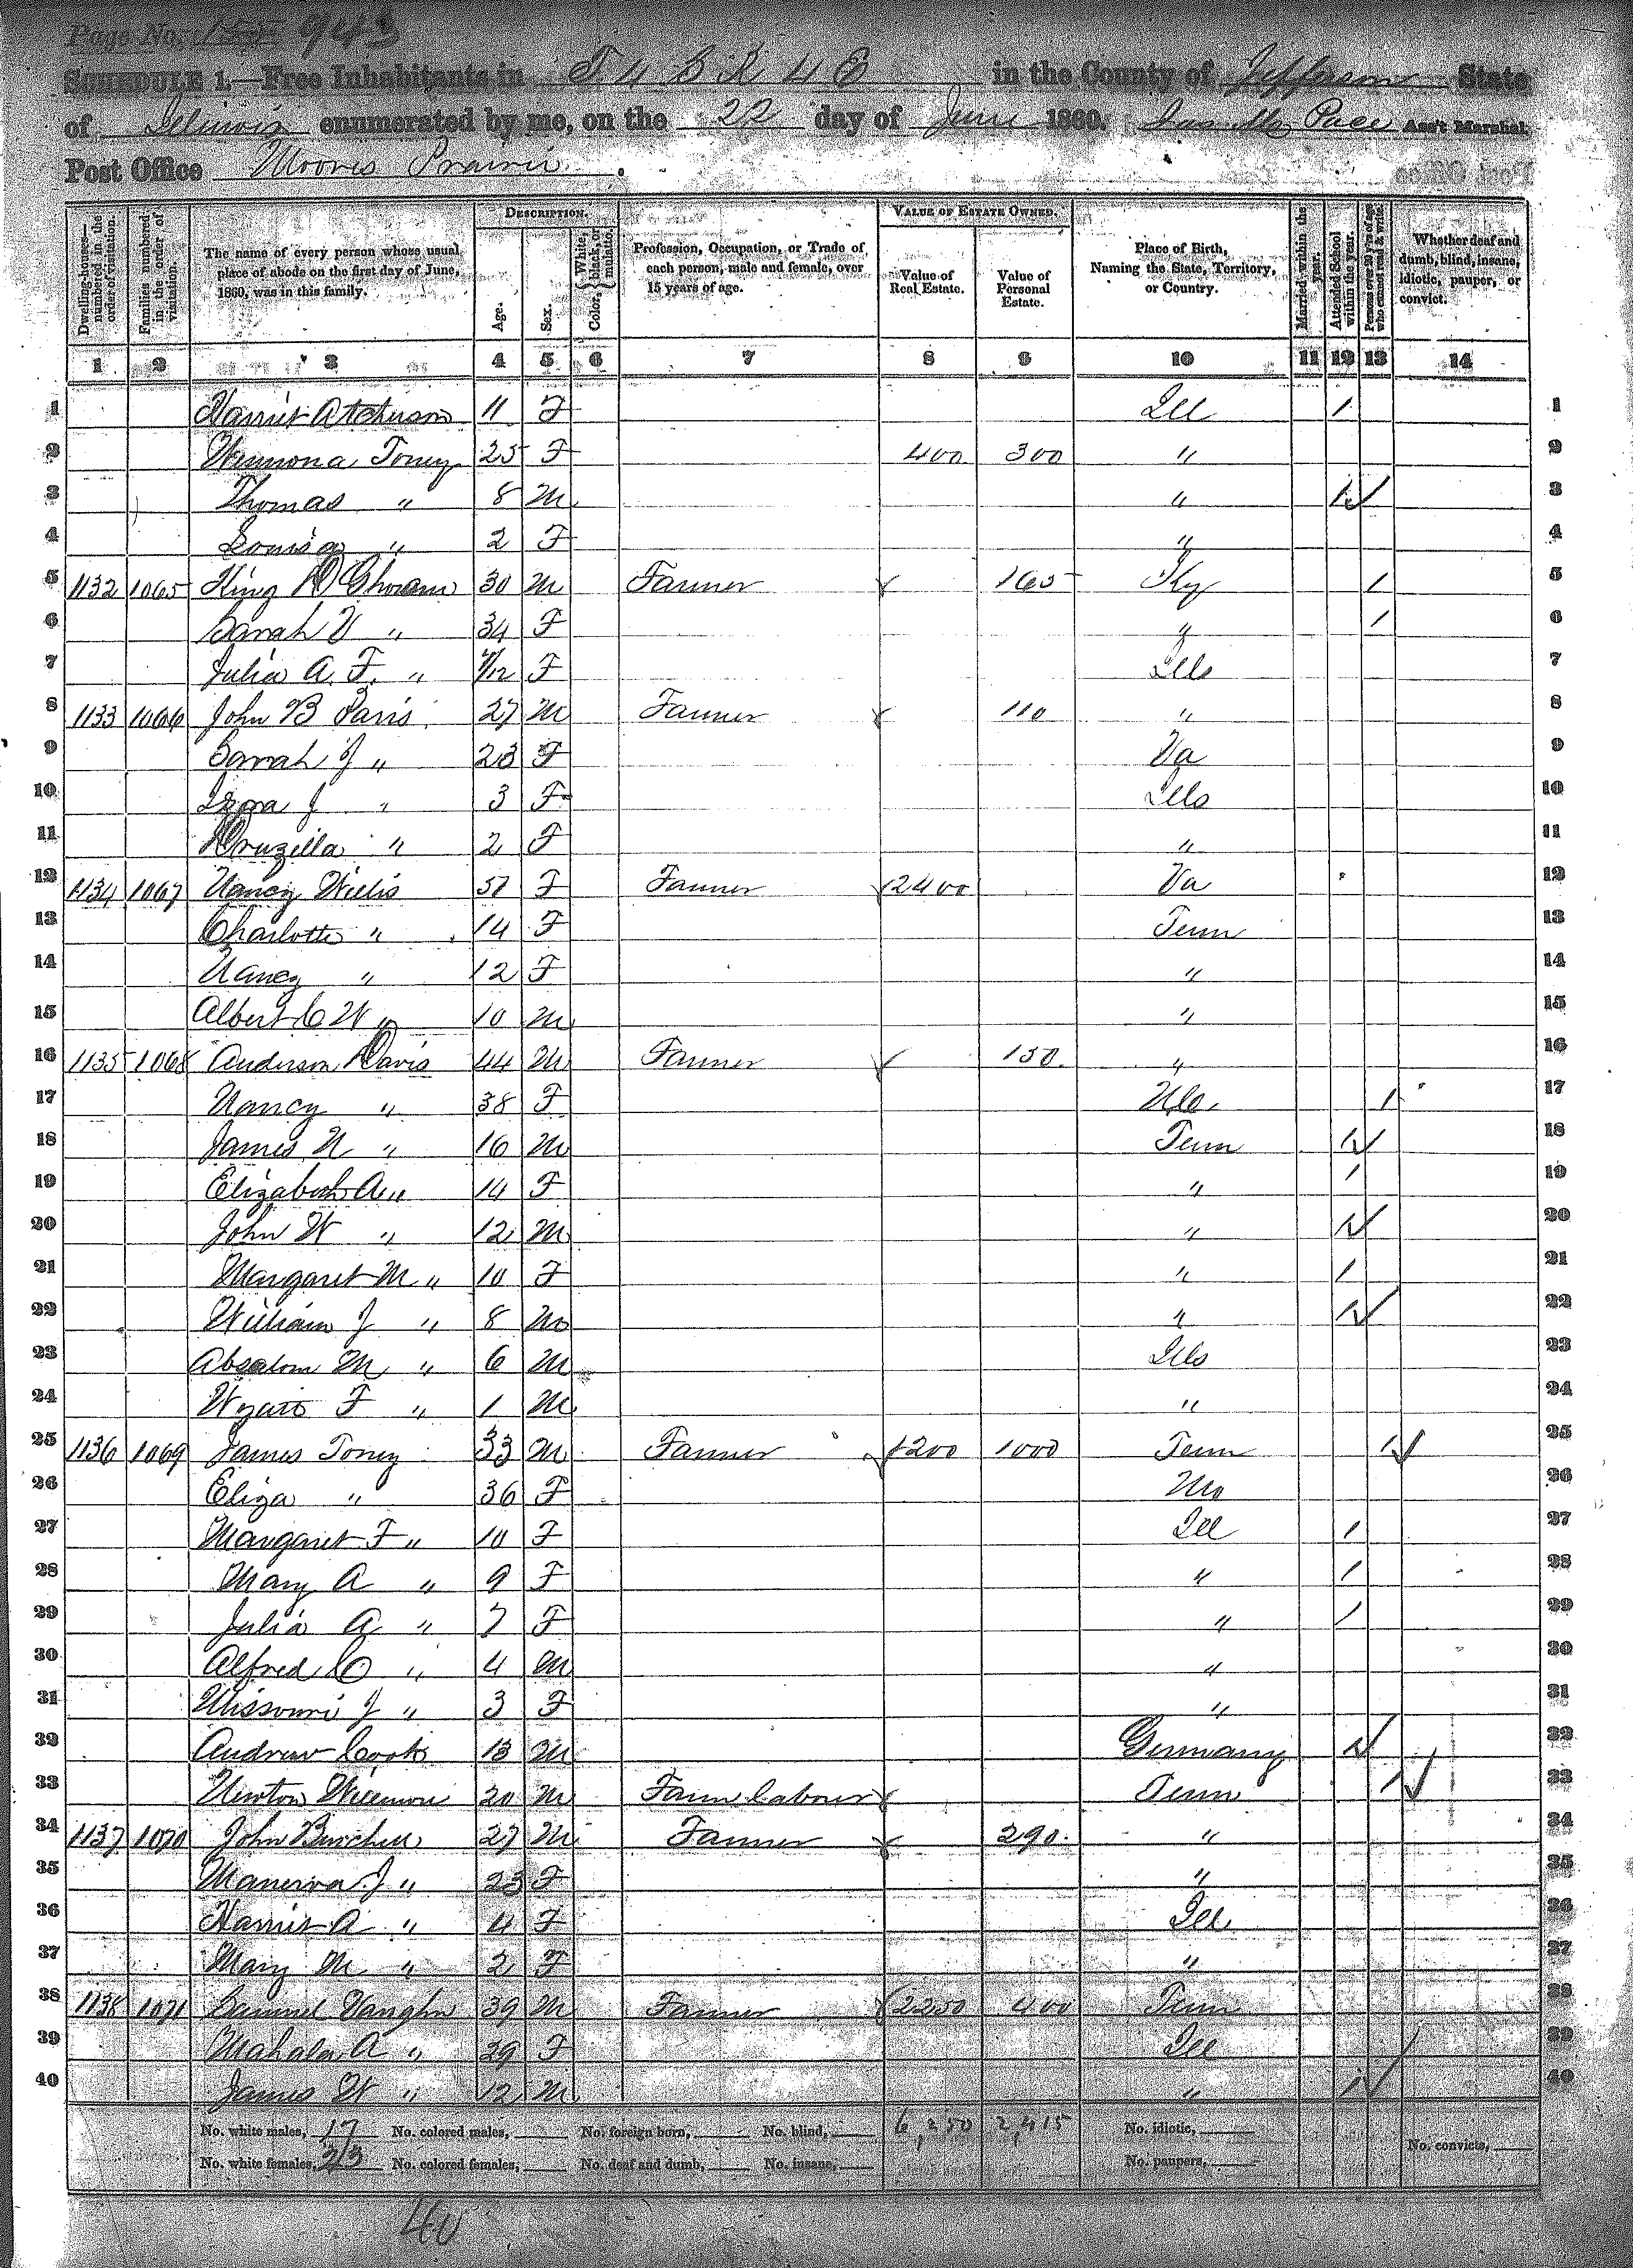 Page No. 943
SCHEDULE 1.—Free Inhabitants in T 4 S R 4 E in the County of Jefferson State
of Illinois enumerated by me, on the 22 day of June 1860. Pace Ass't Marshal.
Post Office Moores Prairie.
DESCRIPTION. VALUE OF ESTATE OWNED.
Dwelling-house—numbered in the order of visitation.
Families numbered in the order of visitation.
The name of every person whose usual place of abode on the first day of June, 1860, was in this family.
Age.
Sex.
Color, White, black, or mulatto.
Profession, Occupation, or Trade of each person, male and female, over 15 years of age.
Value of Real Estate.
Value of Personal Estate.
Place of Birth, Naming the State, Territory, or Country.
Married within the year.
Attended School within the year.
Persons over 20 y'rs of age who cannot read & write.
Whether deaf and dumb, blind, insane, idiotic, pauper, or convict.
1 2 3 4 5 6 7 8 9 10 11 12 13 14
1 Harriet Atchison 11 F Ill 1 1
2 Toney 25 F 400 300 " 2
3 Thomas " 8 M " 1 3
4 Louisa " 2 F " 4
5 1132 1065 King D Ghoram 30 M Farmer 165 Ky 1 5
6 Sarah V " 34 F " 1 6
7 Julia A. F. " /12 F Ills 7
8 1133 1066 John B Paris 27 M Farmer 110 " 8
9 Sarah J " 23 F Va 9
10 J " 3 F Ills 10
11 Druzilla " 2 F " 11
12 1134 1067 Nancy Willis 57 F Farmer 2400 Va 12
13 Charlotte " 14 F Tenn 13
14 Nancy " 12 F " 14
15 Albert C W " 10 M " 15
16 1135 1068 Anderson Davis 44 M Farmer 150 " 16
17 Nancy " 38 F 1 17
18 James N " 16 M Tenn 1 18
19 Elizabeth A " 14 F " 1 19
20 John W " 12 M " 1 20
21 Margaret M " 10 F " 1 21
22 William J " 8 M " 1 22
23 Absalom M " 6 M Ills 23
24 Wyatt F " 1 M " 24
25 1136 1069 James Toney 33 M Farmer 1200 1000 Tenn 1 25
26 Eliza " 36 F Mo 26
27 Margaret F " 10 F Ill 1 27
28 Mary A " 9 F " 1 28
29 Julia A " 7 F " 1 29
30 Alfred C " 4 M " 30
31 Missouri J " 3 F " 31
32 Andrew Cook 13 M Germany 1 32
33 Newton 20 M Farm labour Tenn 1 33
34 1137 1070 John Burchell 27 M Farmer 290 " 34
35 Manerva J " 23 F " 35
36 Harriet A " 4 F Ill 36
37 Mary M " 2 F " 37
38 1138 1071 Samuel Vaughn 39 M Farmer 2250 400 Tenn 38
39 Mahala A " 29 F Ill 39
40 James W " 12 M " 1 40
No. white males, 17 No. colored males, No. foreign born, No. blind, 6,250 2,415 No. idiotic, No. convicts,
No. white females, 23 No. colored females, No. deaf and dumb, No. insane, No. paupers,
40